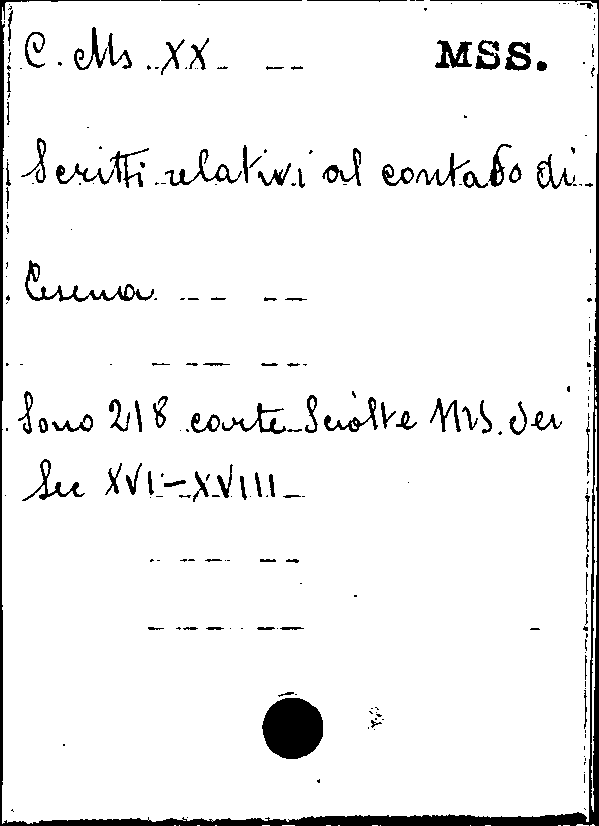 C. Ms XX MSS.
Scritti relativi al contado di
Cesena
Sono 218 carte sciolte MS. dei
Sec XVI-XVIII